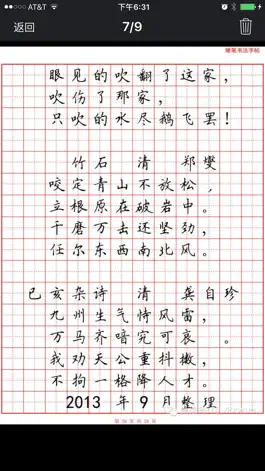 AT&T
下午6:31
返回
7/9
硬笔书法字帖
眼见的吹翻了这家，
吹伤了那家，
只吹的水尽鹅飞罢！
竹石 清 郑燮
咬定青山不放松，
立根原在破岩中。
千磨万击还坚劲，
任尔东西南北风。
己亥杂诗 清 龚自珍
九州生气恃风雷，
万马齐喑究可哀。
我劝天公重抖擞，
不拘一格降人才。
2013 年 9 月整理